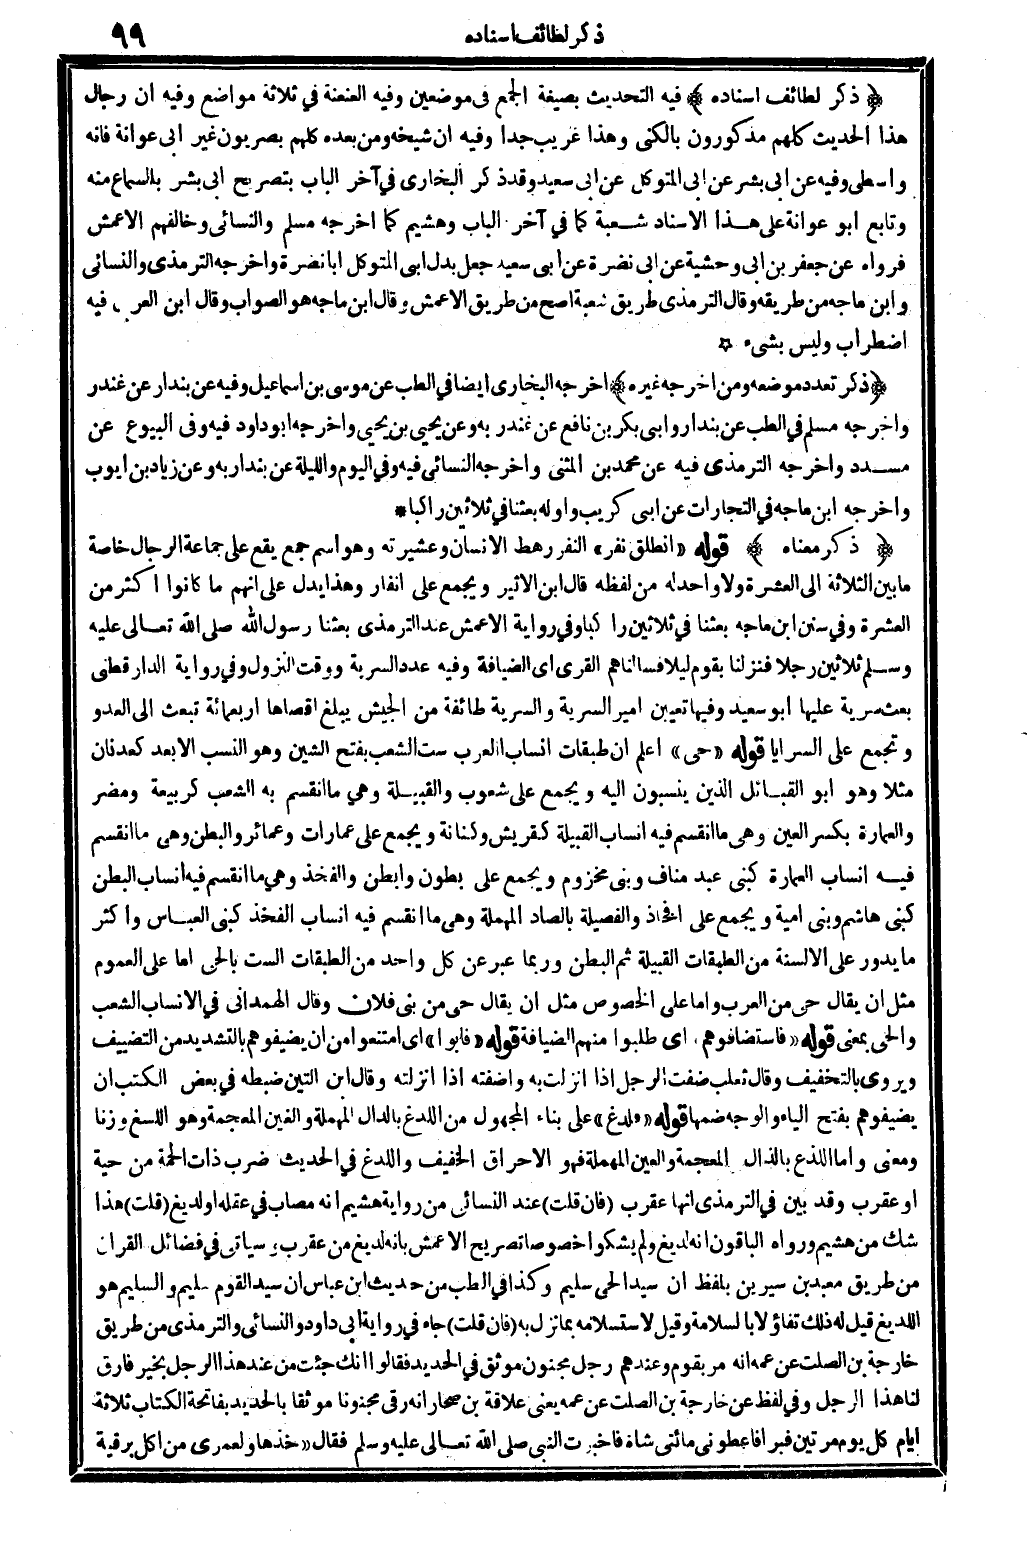 ذكر لطائف اسناده ٩٩
﴿ ذكر لطائف اسناده ﴾ فيه التحديث بصيغة الجمع فى موضعين وفيه العنعنة في ثلاثة مواضع وفيه ان رجال
هذا الحديث كلهم مذكورون بالكنى وهذا غريب جدا وفيه ان شيخه ومن بعده كلهم بصريون غير ابى عوانة فانه
واسطى وفيه عن ابى بشر عن ابى المتوكل عن ابى سعيد وقد ذكر البخارى في آخر الباب بتصريح ابى بشر بالسماع منه
وتابع ابو عوانة على هذا الاسناد شعبة كما في آخر الباب وهشيم كما اخرجه مسلم والنسائى وخالفهم الاعمش
فرواه عن جعفر بن ابى وحشية عن ابى نضرة عن ابى سعيد جعل بدل ابى المتوكل ابا نضرة واخرجه الترمذى والنسائى
وابن ماجه من طريقه وقال الترمذى طريق شعبة اصح من طريق الاعمش وقال ابن ماجه هو الصواب وقال ابن العربى فيه
اضطراب وليس بشىء ☆
﴿ذكر تعدد موضعه ومن اخرجه غيره﴾ اخرجه البخارى ايضا في الطب عن موسى بن اسماعيل وفيه عن بندار عن غندر
واخرجه مسلم في الطب عن بندار وابى بكر بن نافع عن غندر به وعن يحيى بن يحيى واخرجه ابو داود فيه وفى البيوع عن
مسدد واخرجه الترمذى فيه عن محمد بن المثنى واخرجه النسائى فيه وفي اليوم والليلة عن بندار به وعن زياد بن ايوب
واخرجه ابن ماجه في التجارات عن ابى كريب واوله بعثنا في ثلاثين راكبا*
﴿ ذكر معناه ﴾ قوله «انطلق نفر» النفر رهط الانسان وعشيرته وهو اسم جمع يقع على جماعة الرجال خاصة
ما بين الثلاثة الى العشرة ولا واحد له من لفظه قال ابن الاثير ويجمع على انفار وهذا يدل على انهم ما كانوا اكثر من
العشرة وفي سنن ابن ماجه بعثنا في ثلاثين راكبا وفي رواية الاعمش عند الترمذى بعثنا رسول الله صلى الله تعالى عليه
وسلم ثلاثين رجلا فنزلنا بقوم ليلا فسالناهم القرى اى الضيافة وفيه عدد السرية ووقت النزول وفي رواية الدارقطنى
بعث سرية عليها ابو سعيد وفيها تعيين امير السرية والسرية طائفة من الجيش يبلغ اقصاها اربعمائة تبعث الى العدو
وتجمع على السرايا قوله «حى» اعلم ان طبقات انساب العرب ست الشعب بفتح الشين وهو النسب الابعد كعدنان
مثلا وهو ابو القبائل الذين ينسبون اليه ويجمع على شعوب والقبيلة وهي ما انقسم به الشعب كربيعة ومضر
والعمارة بكسر العين وهى ما انقسم فيه انساب القبيلة كقريش وكنانة ويجمع على عمارات وعمائر والبطن وهى ما انقسم
فيه انساب العمارة كبنى عبد مناف وبنى مخزوم ويجمع على بطون وابطن والفخذ وهي ما انقسم فيه انساب البطن
كبنى هاشم وبنى امية ويجمع على افخاذ والفصيلة بالصاد المهملة وهى ما انقسم فيه انساب الفخذ كبنى العباس واكثر
ما يدور على الالسنة من الطبقات القبيلة ثم البطن وربما عبر عن كل واحد من الطبقات الست بالحى اما على العموم
مثل ان يقال حى من العرب واما على الخصوص مثل ان يقال حى من بنى فلان وقال الهمدانى في الانساب الشعب
والحى بمعنى قوله «فاستضافوهم» اى طلبوا منهم الضيافة قوله «فابوا» اى امتنعوا من ان يضيفوهم بالتشديد من التضييف
ويروى بالتخفيف وقال ثعلب ضفت الرجل اذا انزلت به واضفته اذا انزلته وقال ابن التين ضبطه في بعض الكتب ان
يضيفوهم بفتح الياء والوجه ضمها قوله «فلدغ» على بناء المجهول من اللدغ بالدال المهملة والغين المعجمة وهو اللسع وزنا
ومعنى واما اللذع بالذال المعجمة والعين المهملة فهو الاحراق الخفيف واللدغ في الحديث ضرب ذات الحمة من حية
او عقرب وقد بين في الترمذى انها عقرب (فان قلت) عند النسائى من رواية هشيم انه مصاب في عقله او لديغ (قلت) هذا
شك من هشيم ورواه الباقون انه لديغ ولم يشكوا خصوصا تصريح الاعمش بانه لديغ من عقرب وسياتى في فضائل القران
من طريق معبد بن سيرين بلفظ ان سيد الحى سليم وكذا في الطب من حديث ابن عباس ان سيد القوم سليم والسليم هو
اللديغ قيل له ذلك تفاؤلا بالسلامة وقيل لاستسلامه بما نزل به (فان قلت) جاء في رواية ابى داود والنسائى والترمذى من طريق
خارجة بن الصلت عن عمه انه مر بقوم وعندهم رجل مجنون موثق في الحديد فقالوا انك جئت من عند هذا الرجل بخير فارق
لنا هذا الرجل وفي لفظ عن خارجة بن الصلت عن عمه يعنى علاقة بن صحار انه رقى مجنونا موثقا بالحديد بفاتحة الكتاب ثلاثة
ايام كل يوم مرتين فبرا فاعطونى مائتى شاة فاخبرت النبي صلى الله تعالى عليه وسلم فقال «خذها ولعمرى من اكل برقية